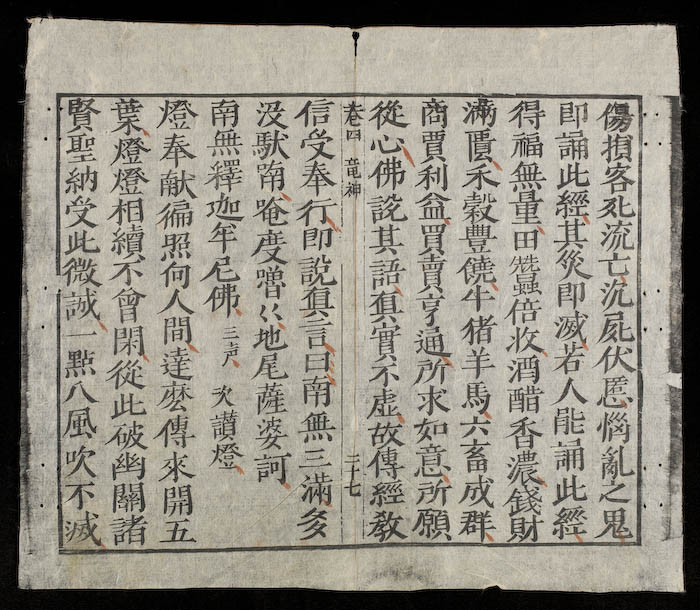 傷損客死流亡沉屍伏慝惱亂之鬼
即誦此經其災即滅若人能誦此經
得福無量田蚕倍收酒醋香濃錢財
滿匱禾穀豐饒牛猪羊馬六畜成群
商賈利益買賣亨通所求如意所願
從心佛說其語真實不虛故傳經教
卷四 竜神 三十七
信受奉行即說真言曰南無三滿多
没馱喃唵度嚕〻地尾薩婆訶
南無釋迦牟尼佛 三声 次讃燈
燈奉献徧照向人間達麽傳來開五
葉燈燈相續不曾閑從此破幽關諸
賢聖納受此微誠一點八風吹不滅